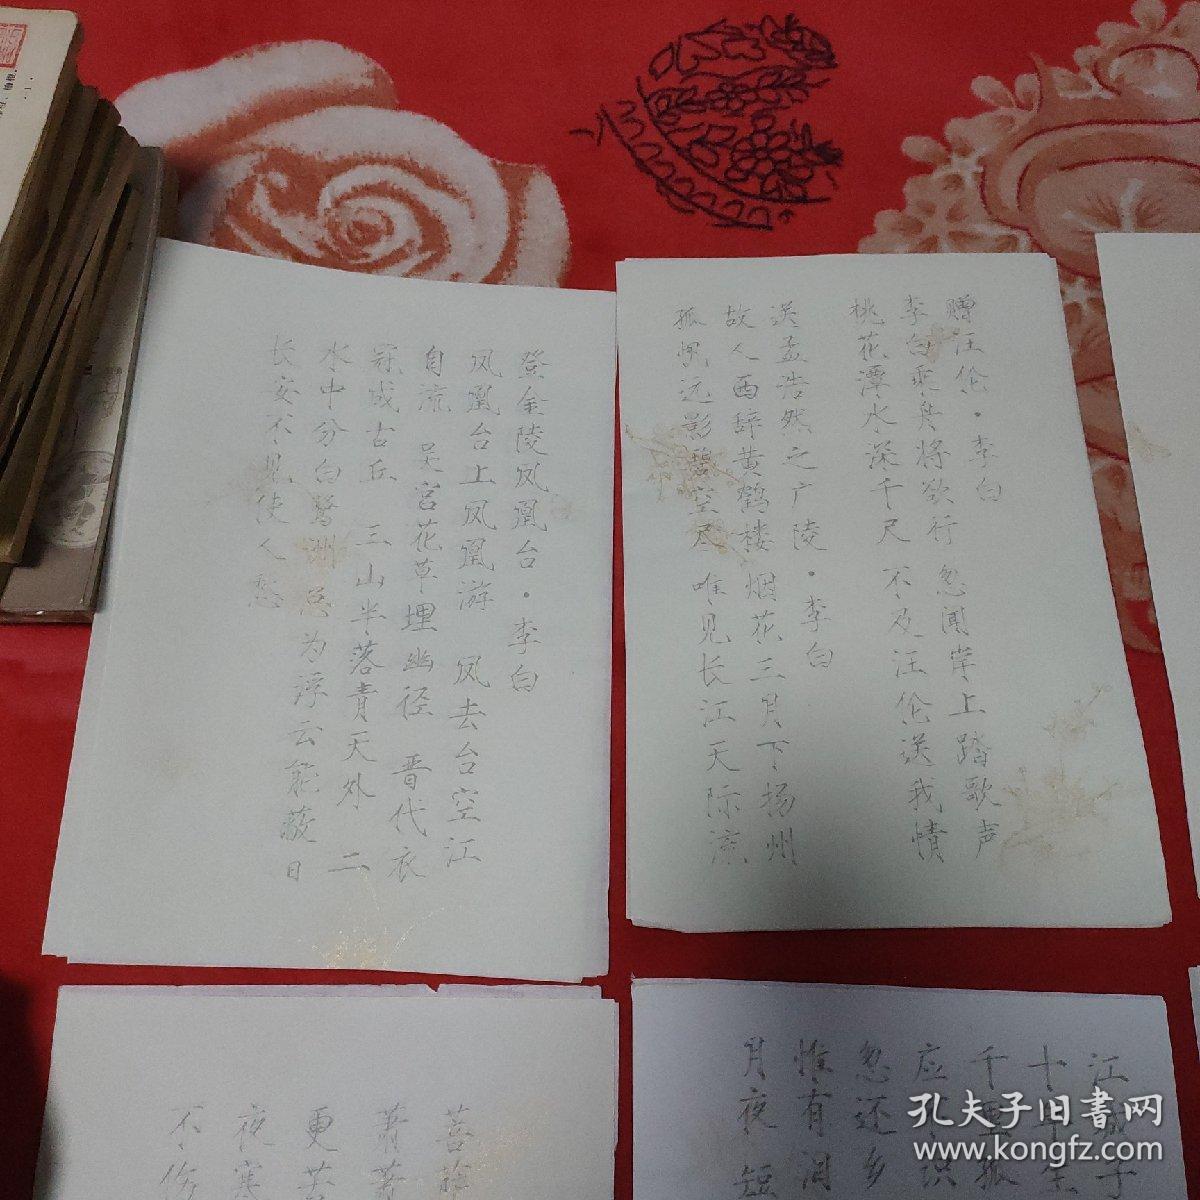 登金陵凤凰台·李白
凤凰台上凤凰游 凤去台空江
自流 吴宫花草埋幽径 晋代衣
冠成古丘 三山半落青天外 二
水中分白鹭洲 总为浮云能蔽日
长安不见使人愁
赠汪伦·李白
李白乘舟将欲行 忽闻岸上踏歌声
桃花潭水深千尺 不及汪伦送我情
送孟浩然之广陵·李白
故人西辞黄鹤楼 烟花三月下扬州
孤帆远影碧空尽 唯见长江天际流
萧萧
更苦
夜寒
不伤
江城子
十年生
千里孤
应识
忽还乡
惟有泪
月夜短
孔夫子旧书网
www.kongfz.com